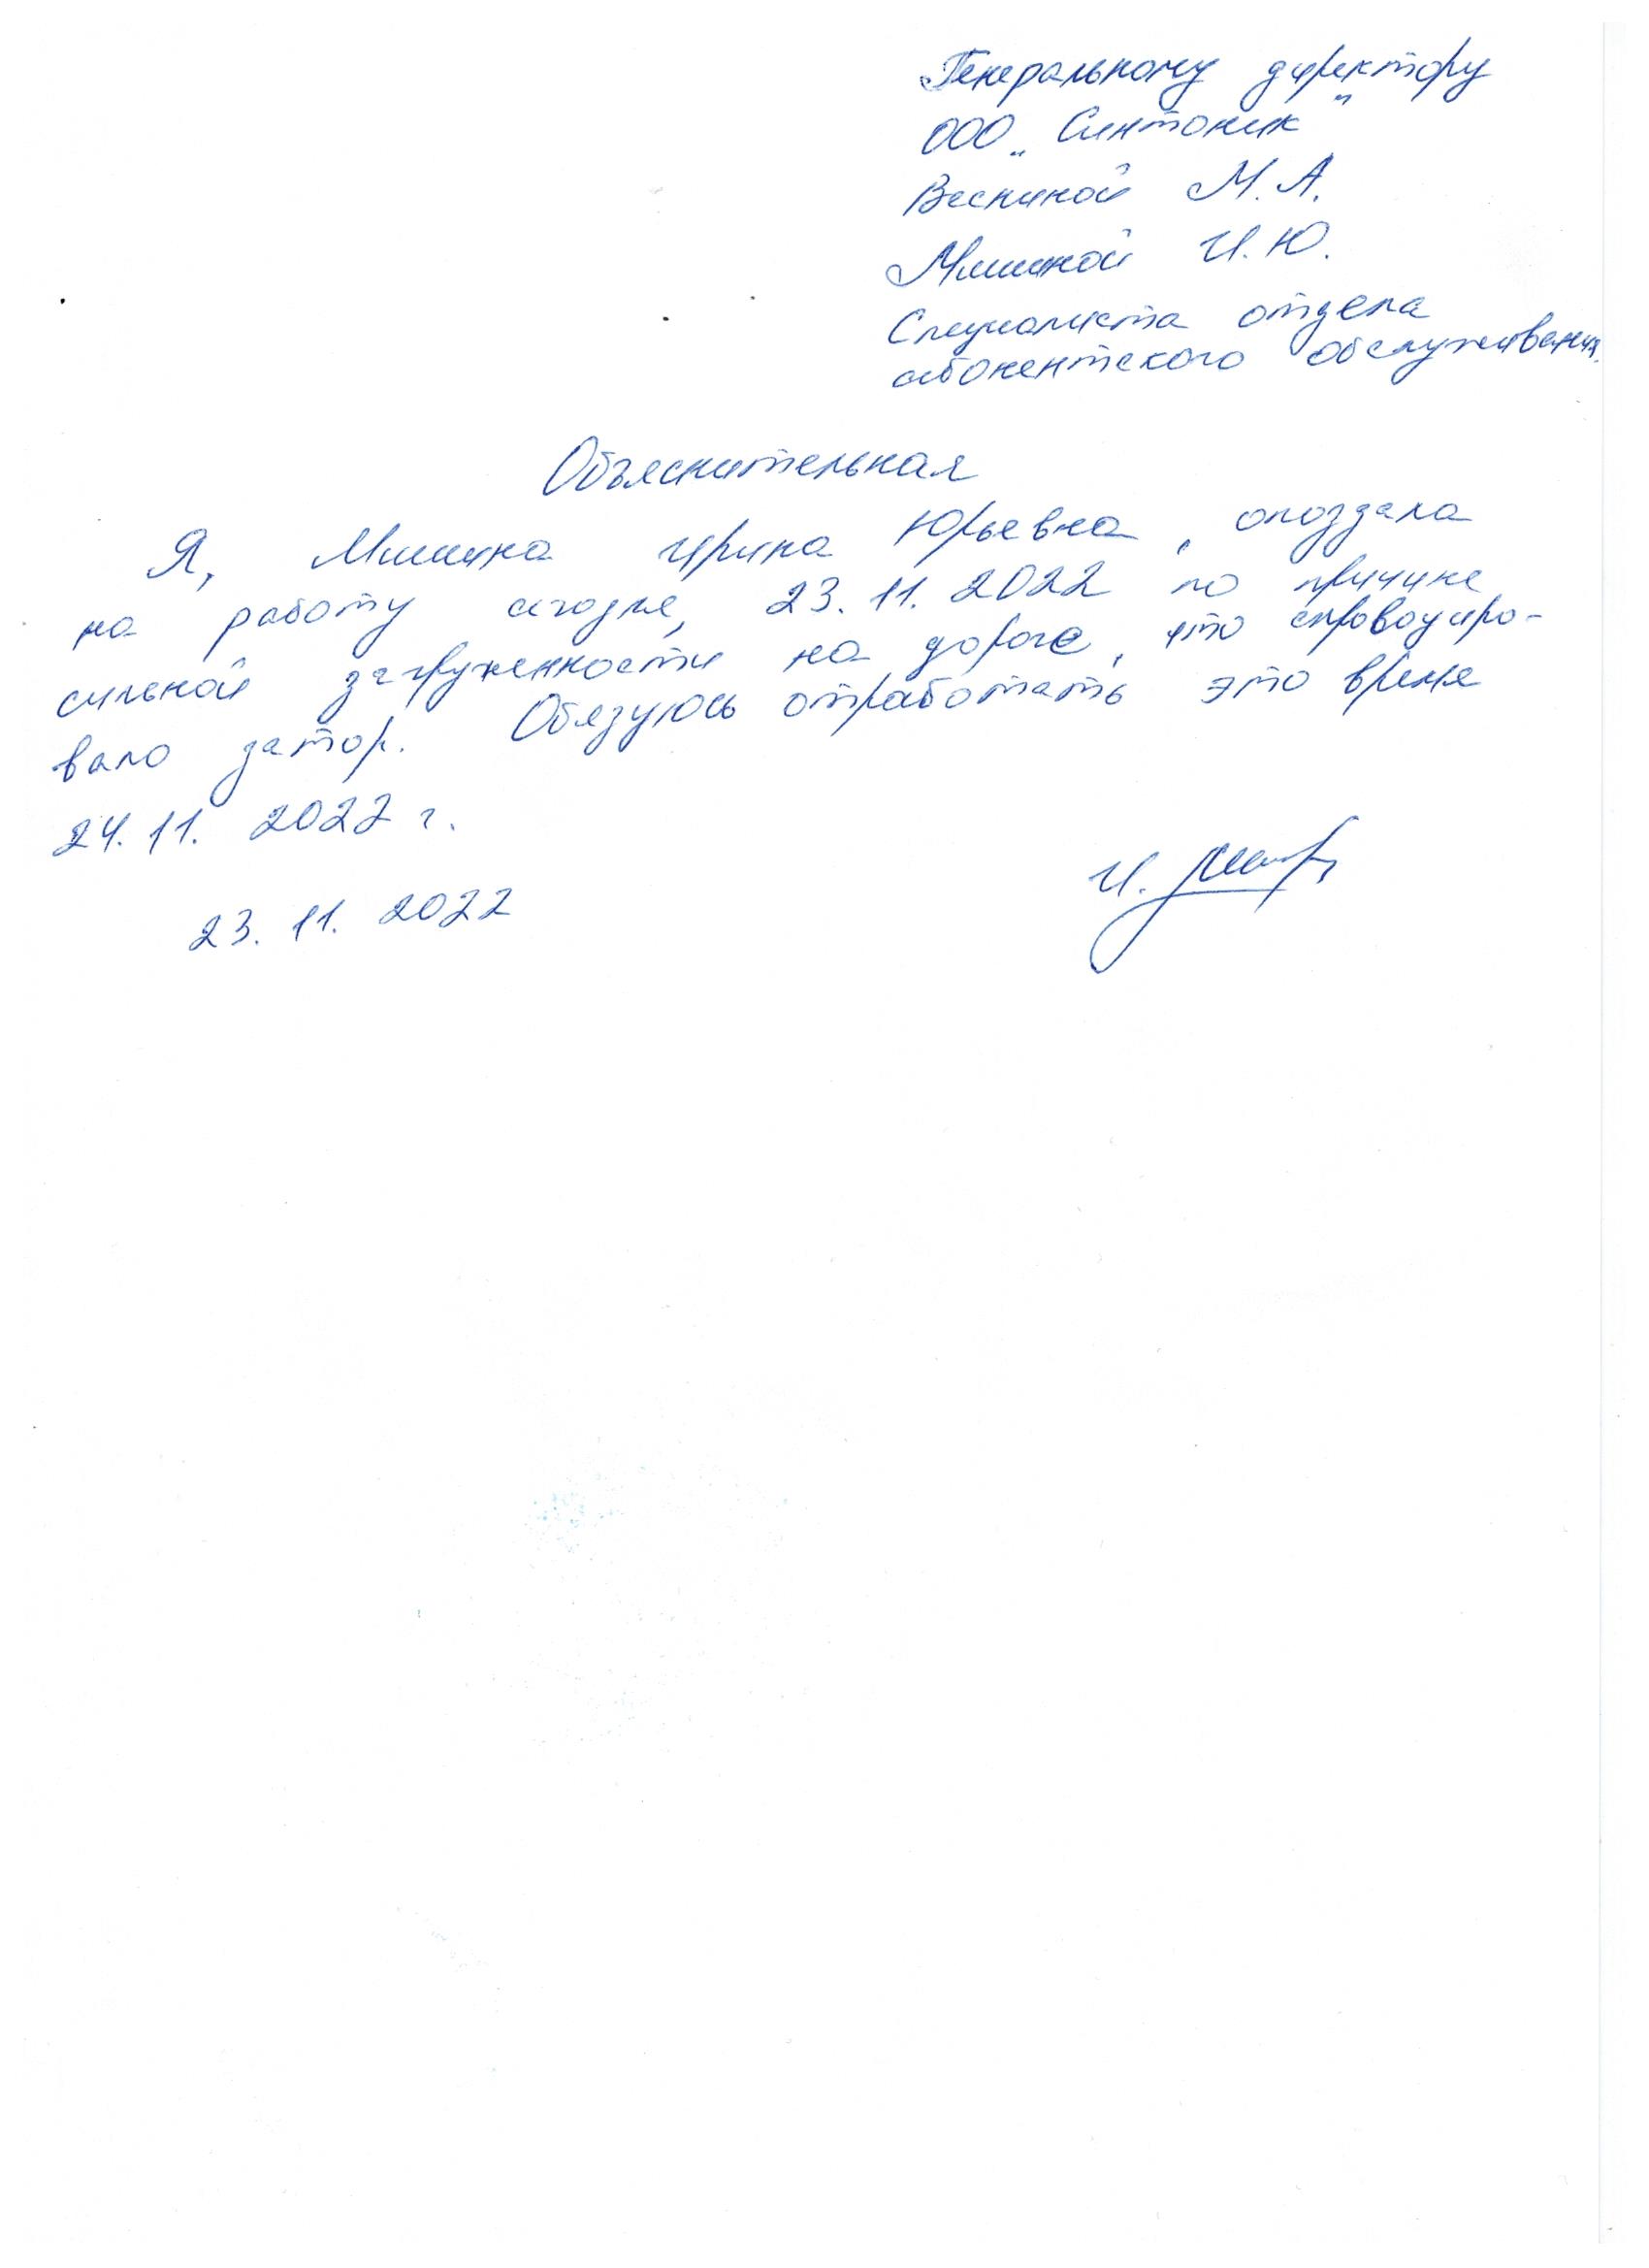 Генеральному директору
ООО „Синтоник"
Весниной М.А.
Мишиной И.Ю.
Специалиста отдела
абонентского обслуживания.
Объяснительная
Я, Мишина Ирина Юрьевна, опоздала
на работу сегодня, 23.11.2022 по причине
сильной загруженности на дороге, что спровоциро-
вало затор. Обязуюсь отработать это время
24.11.2022 г.
23.11.2022
И.